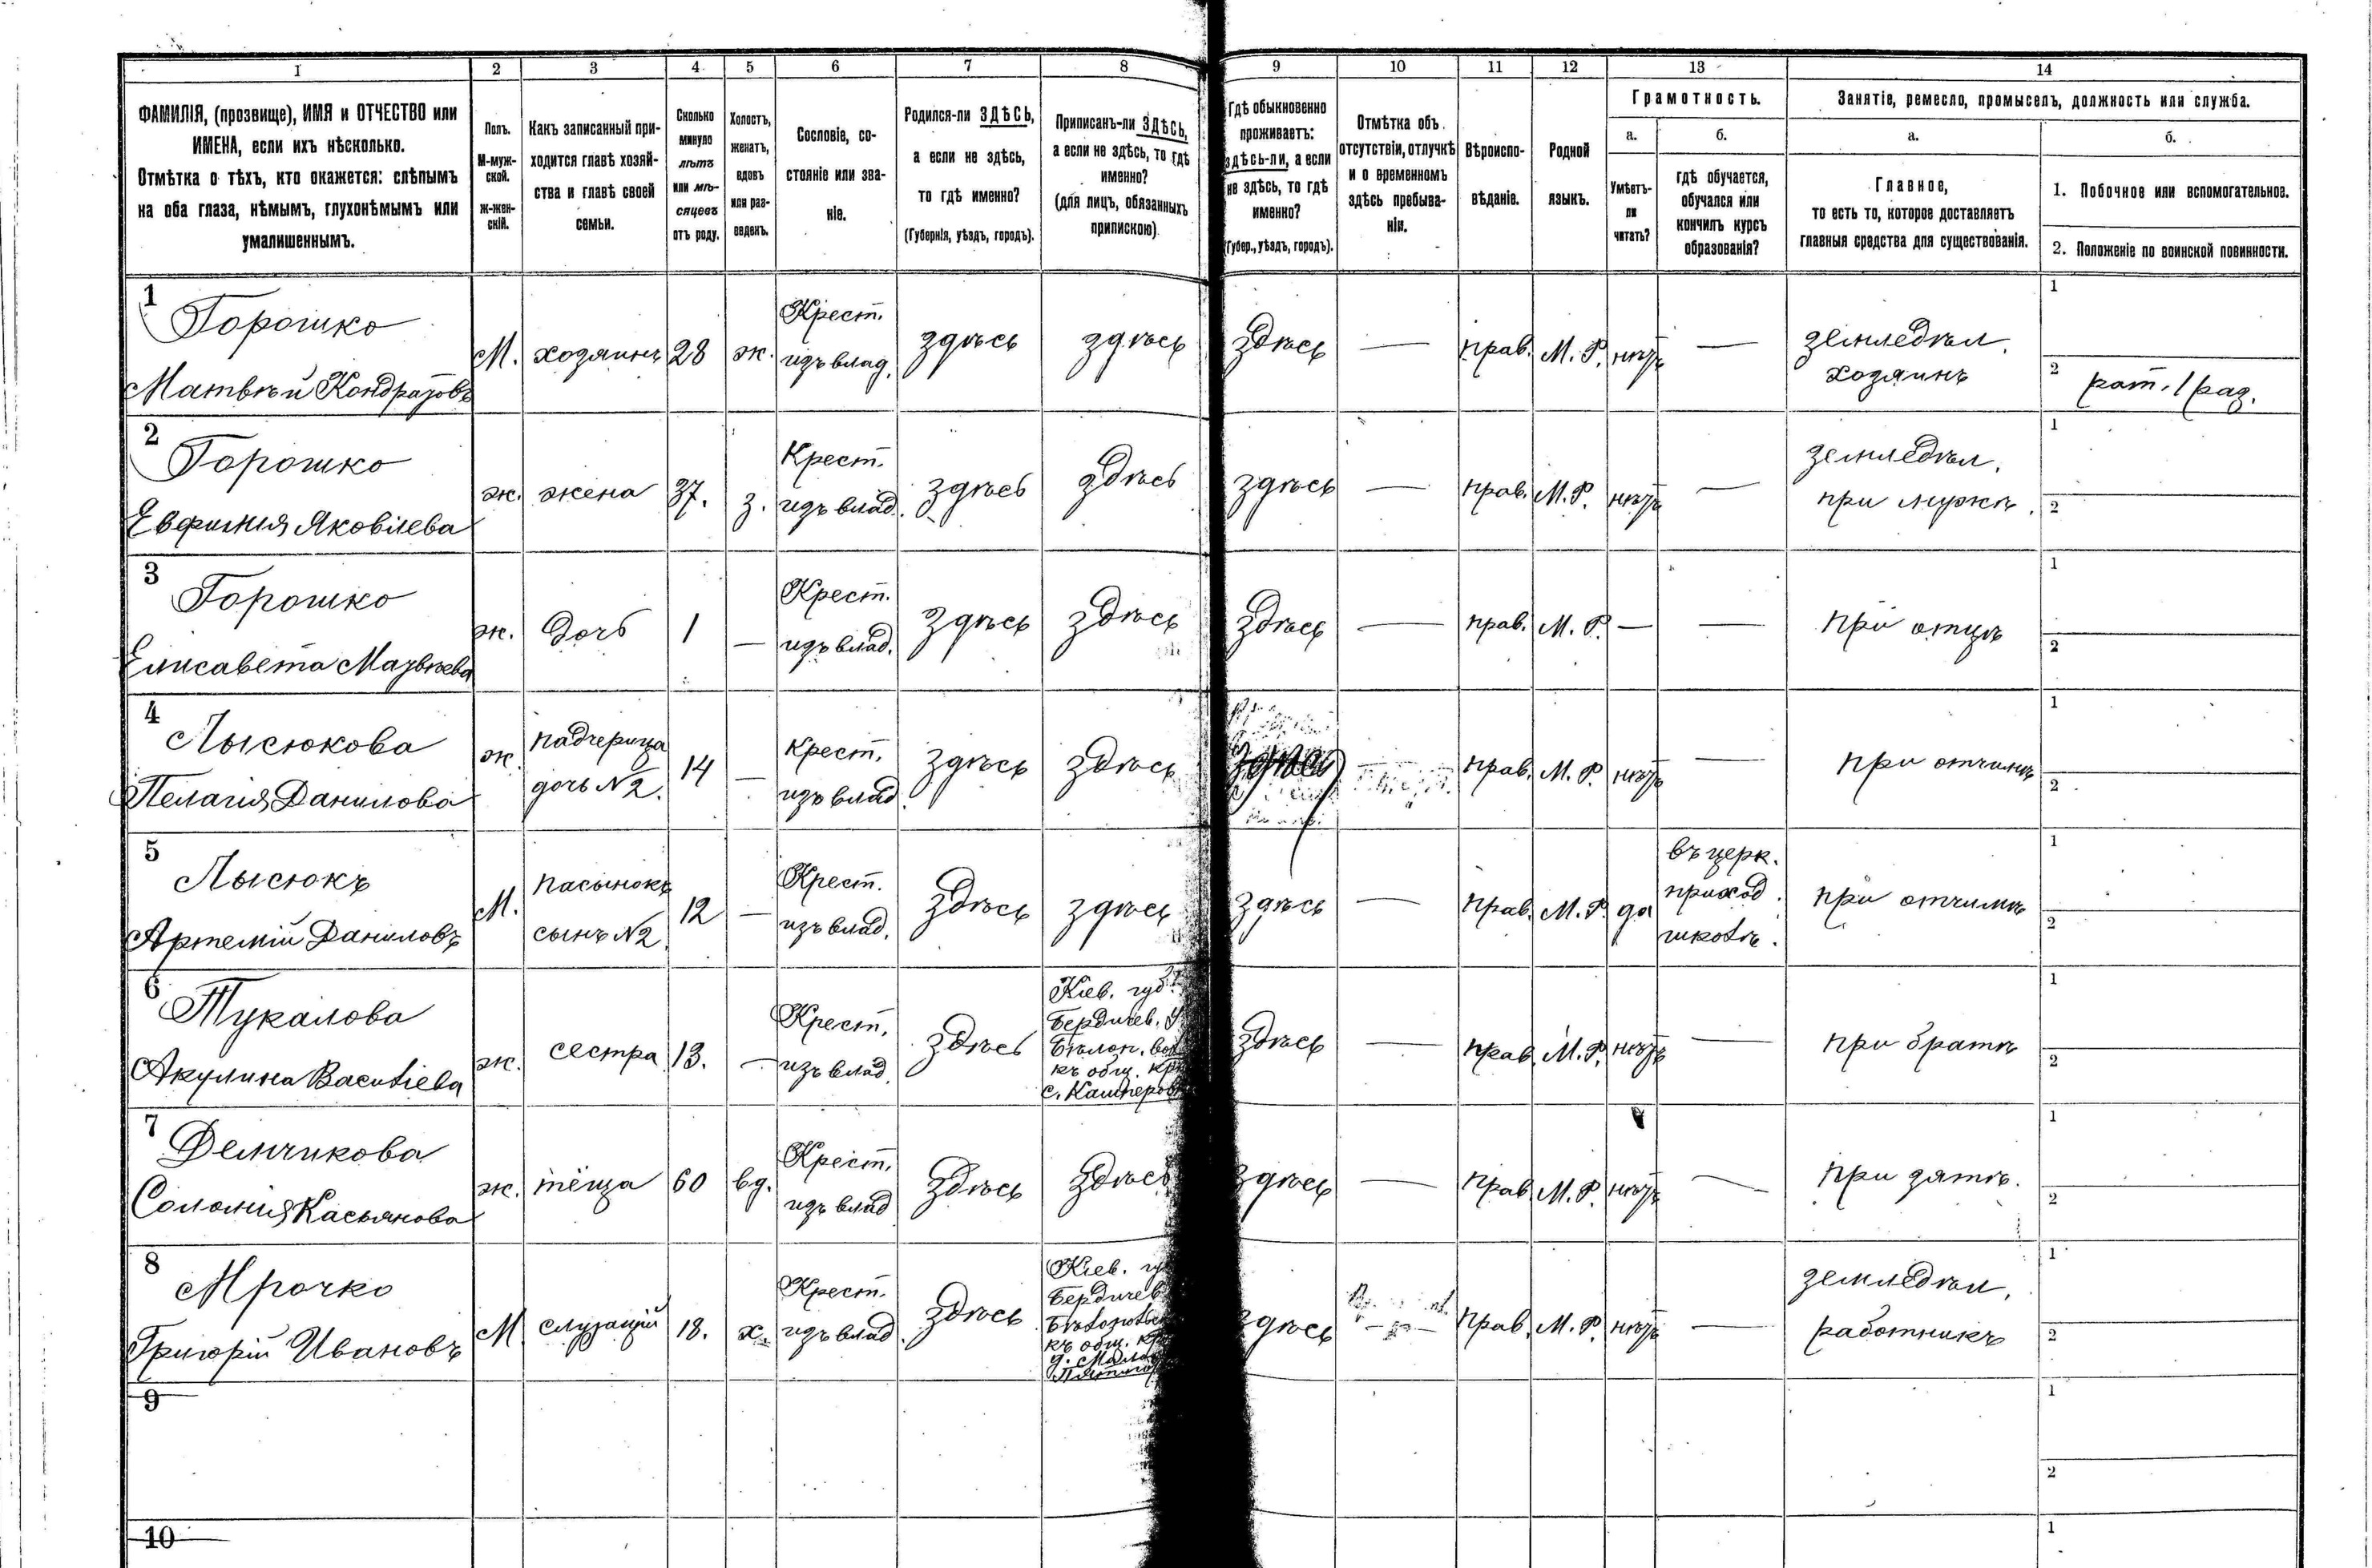 1 2 3 4 5 6 7 8 9 10 11 12 13 14
ФАМИЛІЯ, (прозвище), ИМЯ и ОТЧЕСТВО или
ИМЕНА, если ихъ нѣсколько.
Отмѣтка о тѣхъ, кто окажется: слѣпымъ
на оба глаза, нѣмымъ, глухонѣмымъ или
умалишеннымъ.
Полъ.
М-муж-
ской.
ж-жен-
скій.
Какъ записанный при-
ходится главѣ хозяй-
ства и главѣ своей
семьи.
Сколько
минуло
лѣтъ
или мѣ-
сяцевъ
отъ роду.
Холостъ,
женатъ,
вдовъ
или раз-
веденъ.
Сословіе, со-
стояніе или зва-
ніе.
Родился-ли ЗДѢСЬ,
а если не здѣсь,
то гдѣ именно?
(Губернія, уѣздъ, городъ).
Приписанъ-ли ЗДѢСЬ,
а если не здѣсь, то гдѣ
именно?
(для лицъ, обязанныхъ
припискою)
Гдѣ обыкновенно
проживаетъ:
здѣсь-ли, а если
не здѣсь, то гдѣ
именно?
(Губер., уѣздъ, городъ).
Отмѣтка объ
отсутствіи, отлучкѣ
и о временномъ
здѣсь пребыва-
ніи.
Вѣроиспо-
вѣданіе.
Родной
языкъ.
Грамотность.
а.
Умѣетъ-
ли
читать?
б.
гдѣ обучается,
обучался или
кончилъ курсъ
образованія?
Занятіе, ремесло, промыселъ, должность или служба.
а.
Главное,
то есть то, которое доставляетъ
главныя средства для существованія.
б.
1. Побочное или вспомогательное.
2. Положеніе по воинской повинности.
1
Горошко
Матвѣй Кондратовъ
М.
хозяинъ
28
ж.
Крест.
изъ влад.
здѣсь
здѣсь
здѣсь
—
прав.
М. Р.
нѣтъ
—
земледѣл.
хозяинъ
1
2
рат. 1 раз.
2
Горошко
Евфимія Яковлева
ж.
жена
37.
з.
Крест.
изъ влад.
здѣсь
здѣсь
здѣсь
—
прав.
М. Р.
нѣтъ
—
земледѣл.
при мужѣ.
1
2
3
Горошко
Елисавета Матвѣева
ж.
дочь
1
—
Крест.
изъ влад.
здѣсь
здѣсь
здѣсь
—
прав.
М. Р.
—
—
при отцѣ
1
2
4
Лысюкова
Пелагія Данилова
ж.
падчерица
дочь №2.
14
—
Крест.
изъ влад.
здѣсь
здѣсь
—
прав.
М. Р.
нѣтъ
—
при отчимѣ
1
2
5
Лысюкъ
Артемій Даниловъ
М.
пасынокъ
сынъ №2
12
—
Крест.
изъ влад.
здѣсь
здѣсь
здѣсь
—
прав.
М. Р.
да
въ церк.
приход.
школѣ.
при отчимѣ
1
2
6
Тукалова
Акулина Васильева
ж.
сестра
13.
—
Крест.
изъ влад.
здѣсь
Кіев. губ.
Бердичев. у
Бѣлоп. вол
къ общ. кр
с. Кашперов
здѣсь
—
прав.
М. Р.
нѣтъ
—
при братѣ
1
2
7
Демчикова
Соломія Касьянова
ж.
тёща
60
вд.
Крест.
изъ влад
здѣсь
здѣсь
здѣсь
—
прав.
М. Р.
нѣтъ
—
при зятѣ.
1
2
8
Мрочко
Григорій Ивановъ
М
служащій
18.
х.
Крест.
изъ влад.
здѣсь
Кіев. гу
Бердичев
къ общ. кр
здѣсь
—
прав.
М. Р.
нѣтъ
—
земледѣл.
работникъ
1
2
9
1
2
10
1